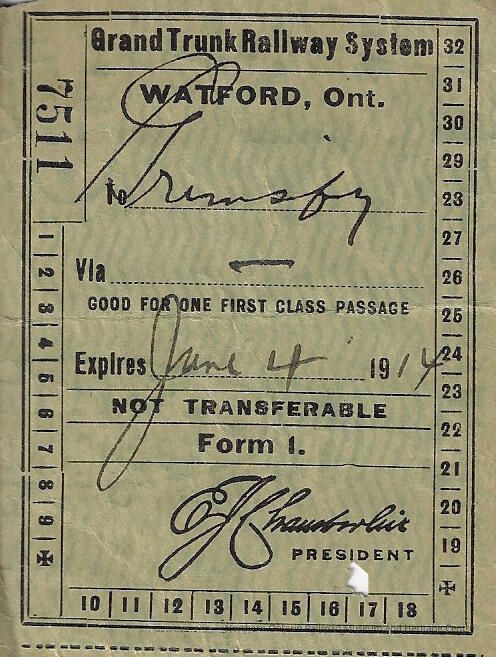 Grand Trunk Railway System
WATFORD, Ont.
7511
To Grimsby
Via —
GOOD FOR ONE FIRST CLASS PASSAGE
Expires June 4 1914
NOT TRANSFERABLE
Form 1.
E J Chamberlin
PRESIDENT
1 2 3 4 5 6 7 8 9 ✠
10 11 12 13 14 15 16 17 18
32
31
30
29
28
27
26
25
24
23
22
21
20
19
✠